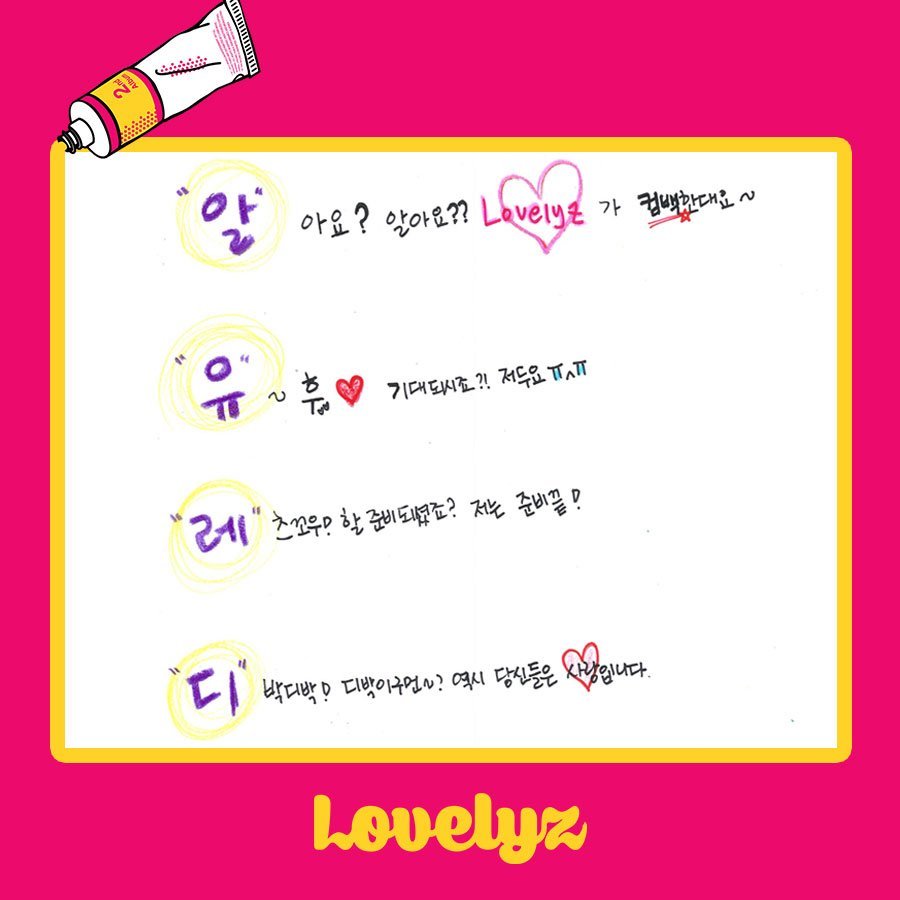 2nd
Album
"알" 아요? 알아요?? Lovelyz 가 컴백한대요~
"유" ~ 훕 기대되시죠?! 저두요 ㅠ^ㅠ
"레" 츠꼬우! 할 준비되셨죠? 저는 준비끝!
"디" 박디박! 디박이구먼~? 역시 당신들은 사랑입니다.
Lovelyz